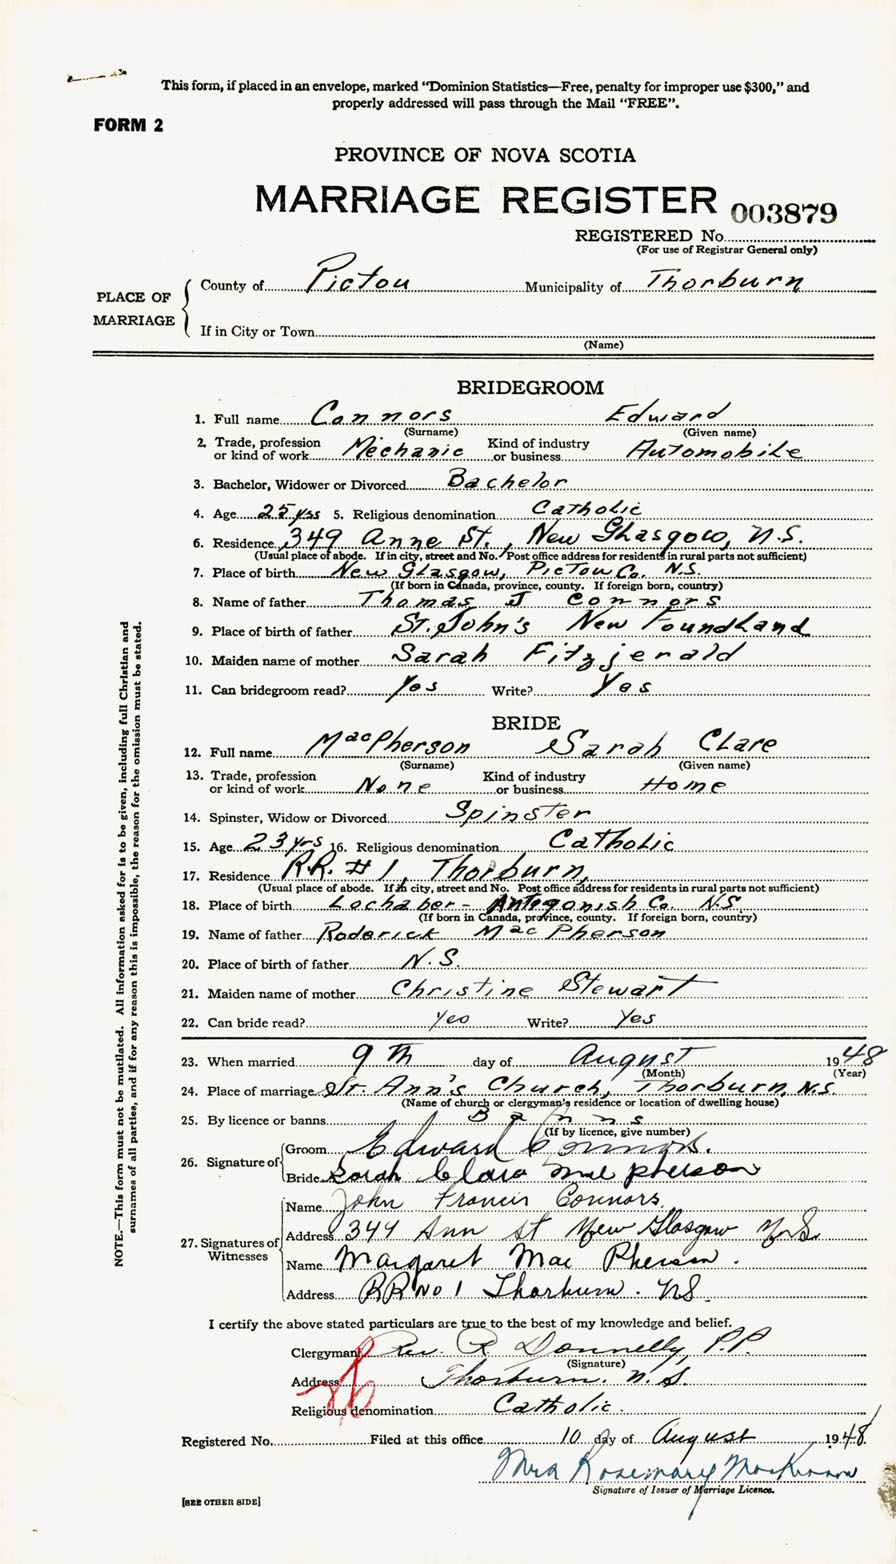 This form, if placed in an envelope, marked "Dominion Statistics—Free, penalty for improper use $300," and
properly addressed will pass through the Mail "FREE".
FORM 2
PROVINCE OF NOVA SCOTIA
MARRIAGE REGISTER 003879
REGISTERED No.
(For use of Registrar General only)
PLACE OF MARRIAGE
County of Pictou Municipality of Thorburn
If in City or Town
(Name)
BRIDEGROOM
1. Full name Connors Edward
(Surname) (Given name)
2. Trade, profession or kind of work Mechanic Kind of industry or business Automobile
3. Bachelor, Widower or Divorced Bachelor
4. Age 25 yrs 5. Religious denomination Catholic
6. Residence 349 Anne St., New Glasgow, N.S.
(Usual place of abode. If in city, street and No. Post office address for residents in rural parts not sufficient)
7. Place of birth New Glasgow, Pictou Co. N.S.
(If born in Canada, province, county. If foreign born, country)
8. Name of father Thomas J Connors
9. Place of birth of father St. John's New Foundland
10. Maiden name of mother Sarah Fitzjerald
11. Can bridegroom read? Yes Write? Yes
BRIDE
12. Full name MacPherson Sarah Clare
(Surname) (Given name)
13. Trade, profession or kind of work None Kind of industry or business Home
14. Spinster, Widow or Divorced Spinster
15. Age 23 yrs 16. Religious denomination Catholic
17. Residence R.R. # 1, Thorburn,
(Usual place of abode. If in city, street and No. Post office address for residents in rural parts not sufficient)
18. Place of birth Lochaber - Antigonish Co. N.S.
(If born in Canada, province, county. If foreign born, country)
19. Name of father Roderick MacPherson
20. Place of birth of father N.S.
21. Maiden name of mother Christine Stewart
22. Can bride read? Yes Write? Yes
23. When married 9th day of August 1948
(Month) (Year)
24. Place of marriage St. Ann's Church, Thorburn, N.S.
(Name of church or clergyman's residence or location of dwelling house)
25. By licence or banns Banns
(If by licence, give number)
26. Signature of
Groom Edward Connors.
Bride Sarah Clare MacPherson
27. Signatures of Witnesses
Name John Francis Connors
Address 344 Ann St New Glasgow N.S.
Name Margaret Mac Pherson.
Address RR No 1 Thorburn. NS.
I certify the above stated particulars are true to the best of my knowledge and belief.
Clergyman Rev. R Donnelly, P.P.
(Signature)
Address Thorburn. N.S.
Religious denomination Catholic.
Registered No. Filed at this office 10 day of August 1948.
Mrs Rosemary MacKinnon
Signature of Issuer of Marriage Licence.
[SEE OTHER SIDE]
NOTE.—This form must not be mutilated. All information asked for is to be given, including full Christian and
surnames of all parties, and if for any reason this is impossible, the reason for the omission must be stated.